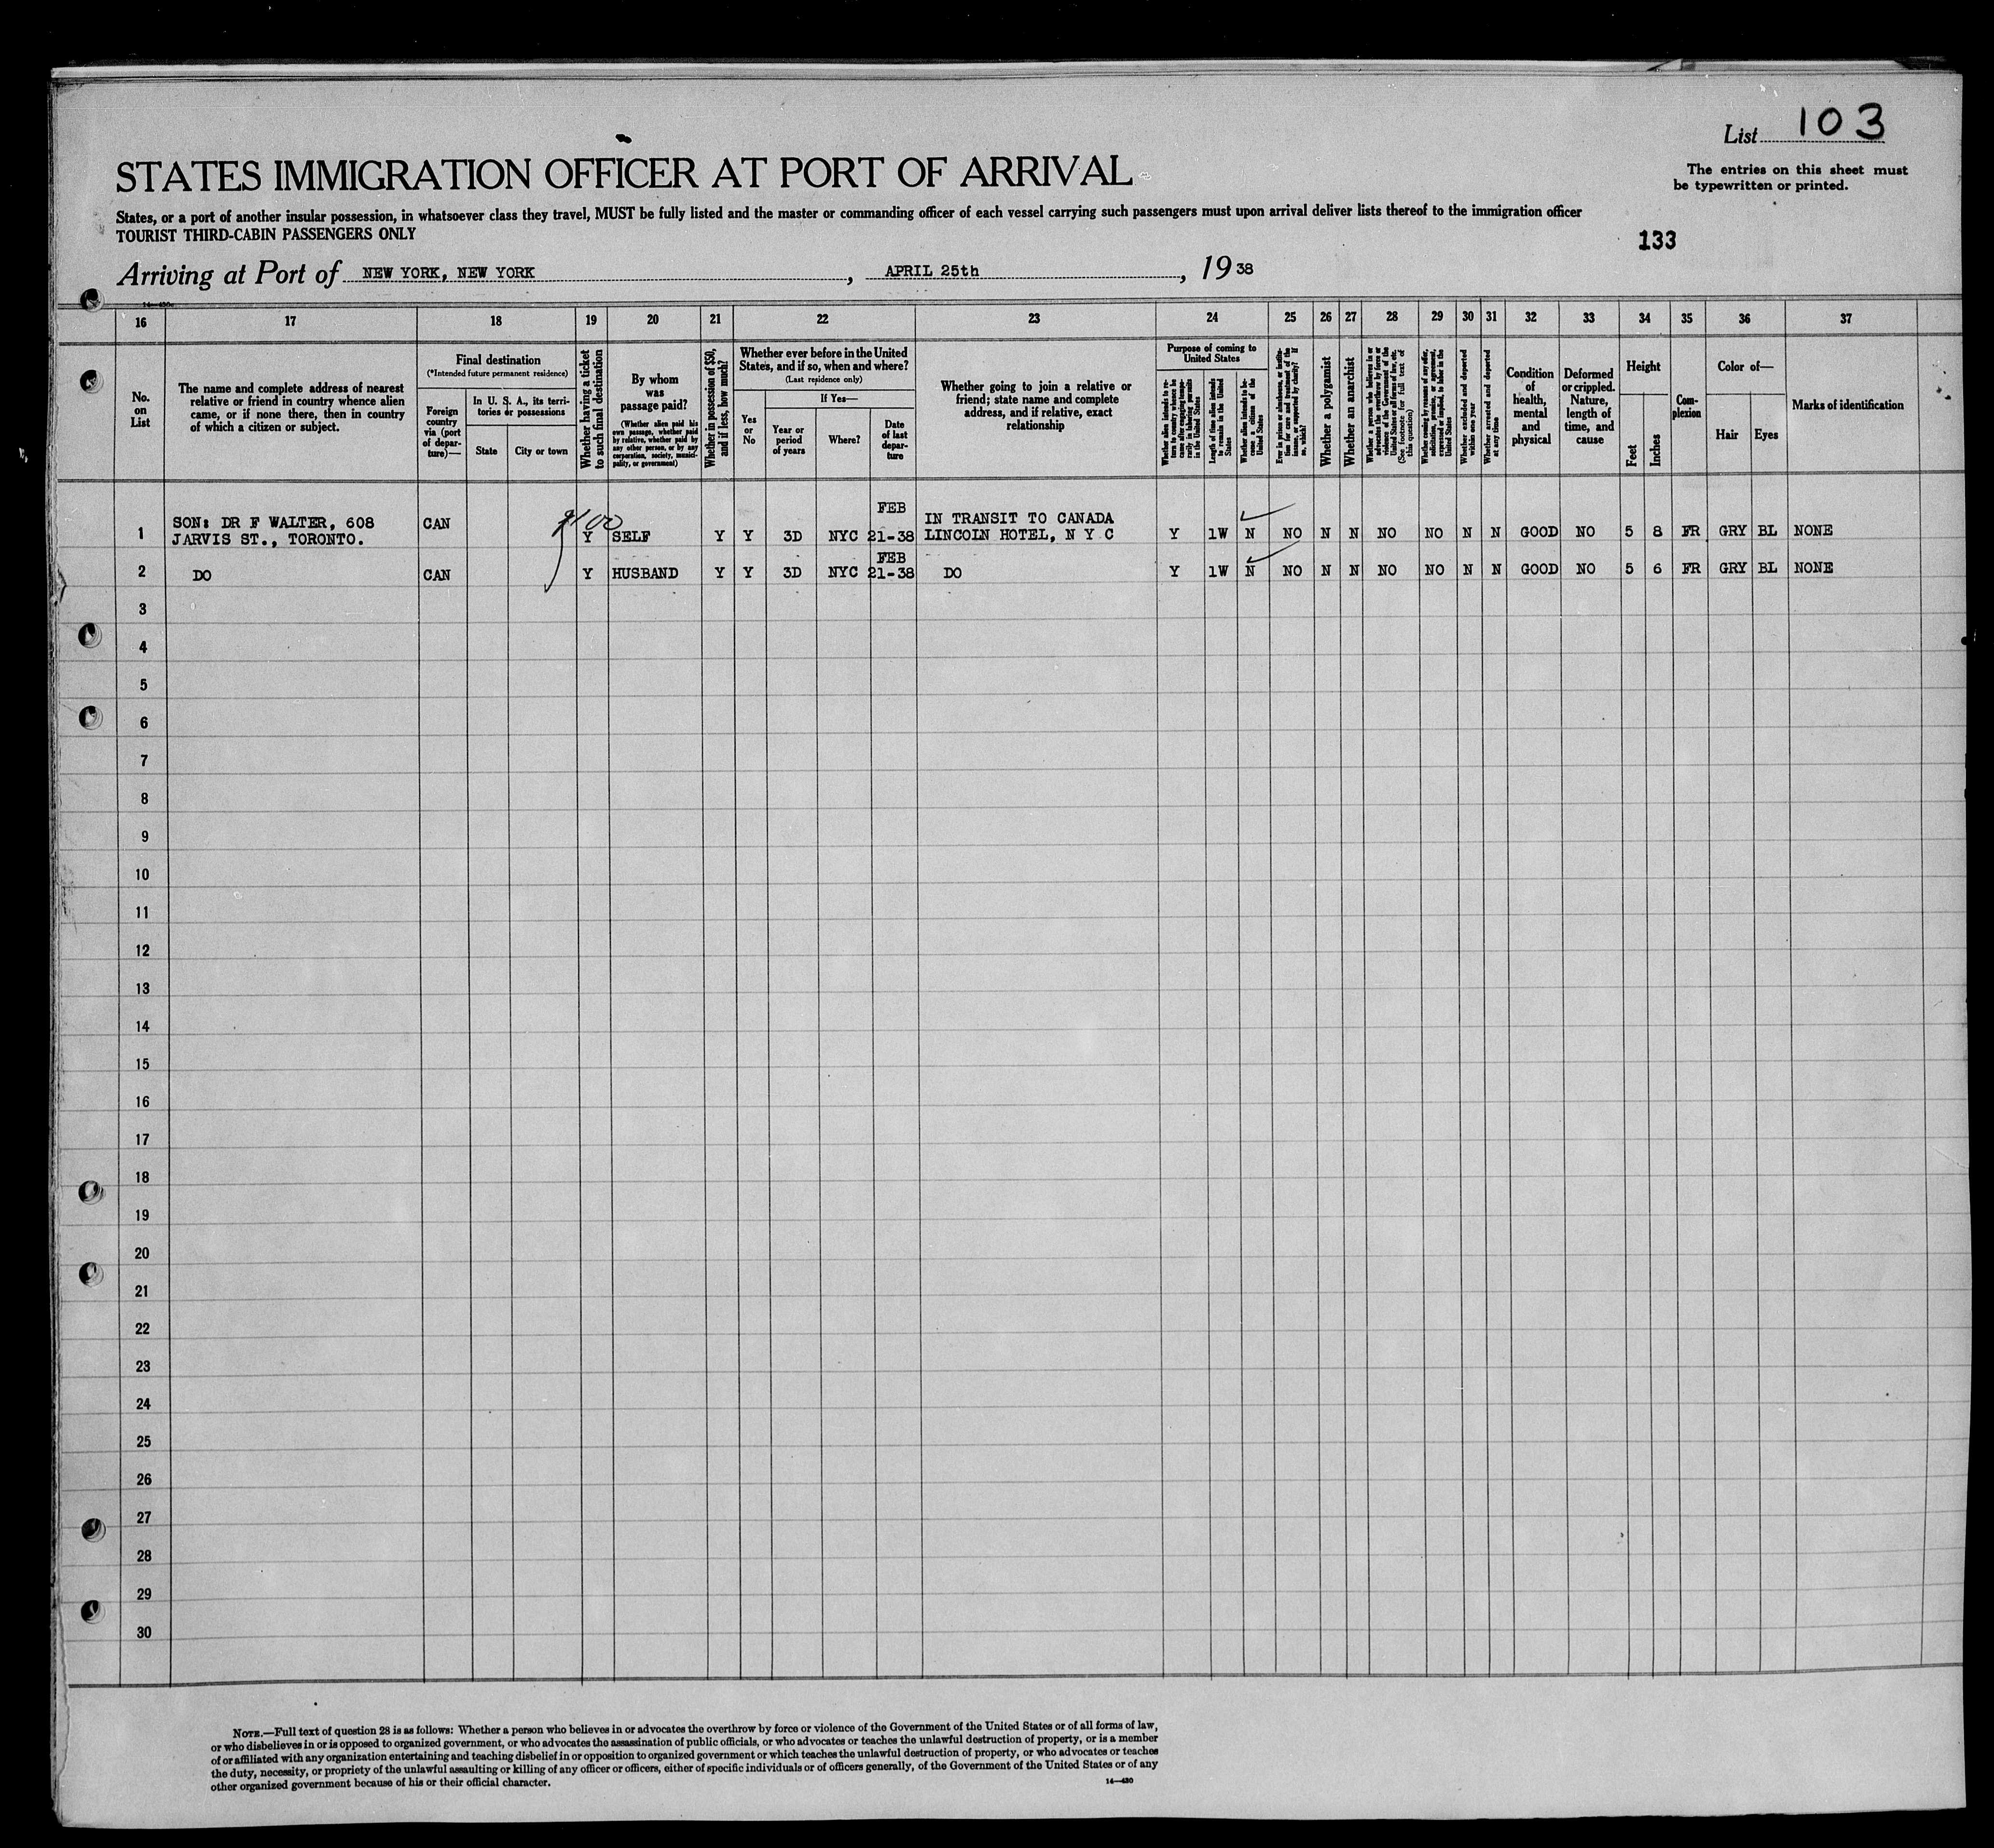 List 103
STATES IMMIGRATION OFFICER AT PORT OF ARRIVAL
The entries on this sheet must
be typewritten or printed.
States, or a port of another insular possession, in whatsoever class they travel, MUST be fully listed and the master or commanding officer of each vessel carrying such passengers must upon arrival deliver lists thereof to the immigration officer
TOURIST THIRD-CABIN PASSENGERS ONLY
133
Arriving at Port of NEW YORK, NEW YORK, APRIL 25th, 1938
16 17 18 19 20 21 22 23 24 25 26 27 28 29 30 31 32 33 34 35 36 37
No.
on
List
The name and complete address of nearest
relative or friend in country whence alien
came, or if none there, then in country
of which a citizen or subject.
Final destination
(*Intended future permanent residence)
Foreign
country
via (port
of depar-
ture)—
In U. S. A., its terri-
tories or possessions
State
City or town
Whether having a ticket
to such final destination
By whom
was
passage paid?
(Whether alien paid his
own passage, whether paid
by relative, whether paid by
any other person, or by any
corporation, society, munici-
pality, or government)
Whether in possession of $50,
and if less, how much?
Whether ever before in the United
States, and if so, when and where?
(Last residence only)
Yes
or
No
If Yes—
Year or
period
of years
Where?
Date
of last
depar-
ture
Whether going to join a relative or
friend; state name and complete
address, and if relative, exact
relationship
Purpose of coming to
United States
Whether alien intends to re-
turn to country whence he
came after engaging tempo-
rarily in laboring pursuits
in the United States
Length of time alien intends
to remain in the United
States
Whether alien intends to be-
come a citizen of the
United States
Ever in prison or almshouse, or institu-
tion for care and treatment of the
insane, or supported by charity? If
so, which?
Whether a polygamist
Whether an anarchist
Whether a person who believes in or
advocates the overthrow by force or
violence of the Government of the
United States or all forms of law, etc.
(See footnote for full text of
this question)
Whether coming by reason of any offer,
solicitation, promise, or agreement,
expressed or implied, to labor in the
United States
Whether excluded and deported
within one year
Whether arrested and deported
at any time
Condition
of
health,
mental
and
physical
Deformed
or crippled.
Nature,
length of
time, and
cause
Height
Feet
Inches
Com-
plexion
Color of—
Hair
Eyes
Marks of identification
$100
FEB
1 SON: DR F WALTER, 608 CAN Y SELF Y Y 3D NYC 21-38 IN TRANSIT TO CANADA Y 1W N NO N N NO NO N N GOOD NO 5 8 FR GRY BL NONE
JARVIS ST., TORONTO. LINCOLN HOTEL, N Y C
FEB
2 DO CAN Y HUSBAND Y Y 3D NYC 21-38 DO Y 1W N NO N N NO NO N N GOOD NO 5 6 FR GRY BL NONE
3
4
5
6
7
8
9
10
11
12
13
14
15
16
17
18
19
20
21
22
23
24
25
26
27
28
29
30
NOTE.—Full text of question 28 is as follows: Whether a person who believes in or advocates the overthrow by force or violence of the Government of the United States or of all forms of law,
or who disbelieves in or is opposed to organized government, or who advocates the assassination of public officials, or who advocates or teaches the unlawful destruction of property, or is a member
of or affiliated with any organization entertaining and teaching disbelief in or opposition to organized government or which teaches the unlawful destruction of property, or who advocates or teaches
the duty, necessity, or propriety of the unlawful assaulting or killing of any officer or officers, either of specific individuals or of officers generally, of the Government of the United States or of any
other organized government because of his or their official character.
14—430